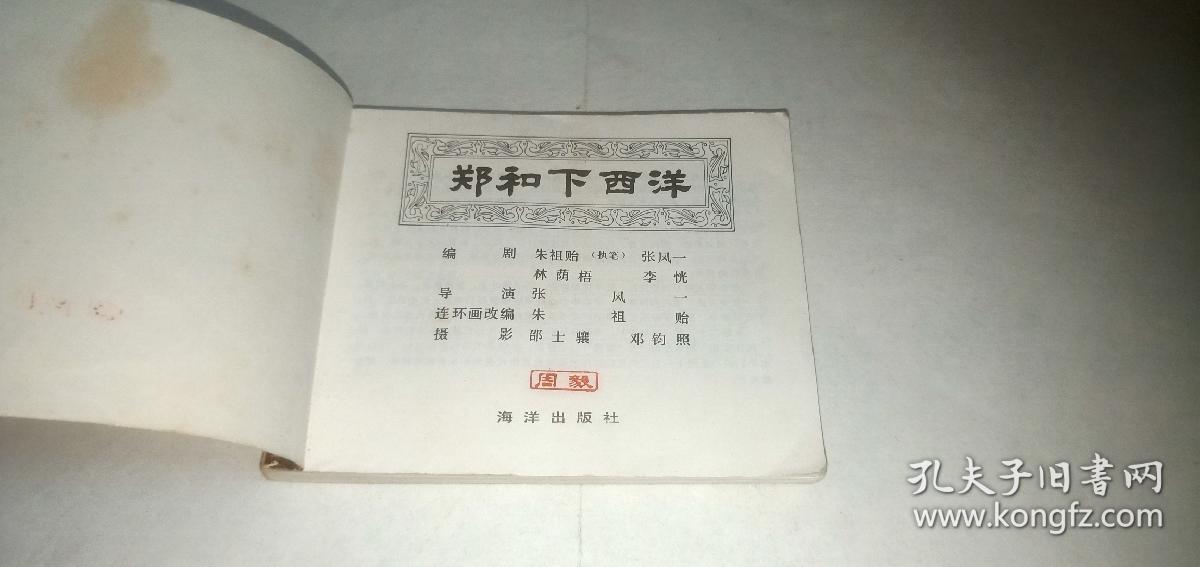 郑和下西洋
编剧 朱祖贻（执笔） 张风一
林荫梧 李恍
导演 张风一
连环画改编 朱祖贻
摄影 邵士骧 邓钧照
周毅
海洋出版社
孔夫子旧书网
www.kongfz.com